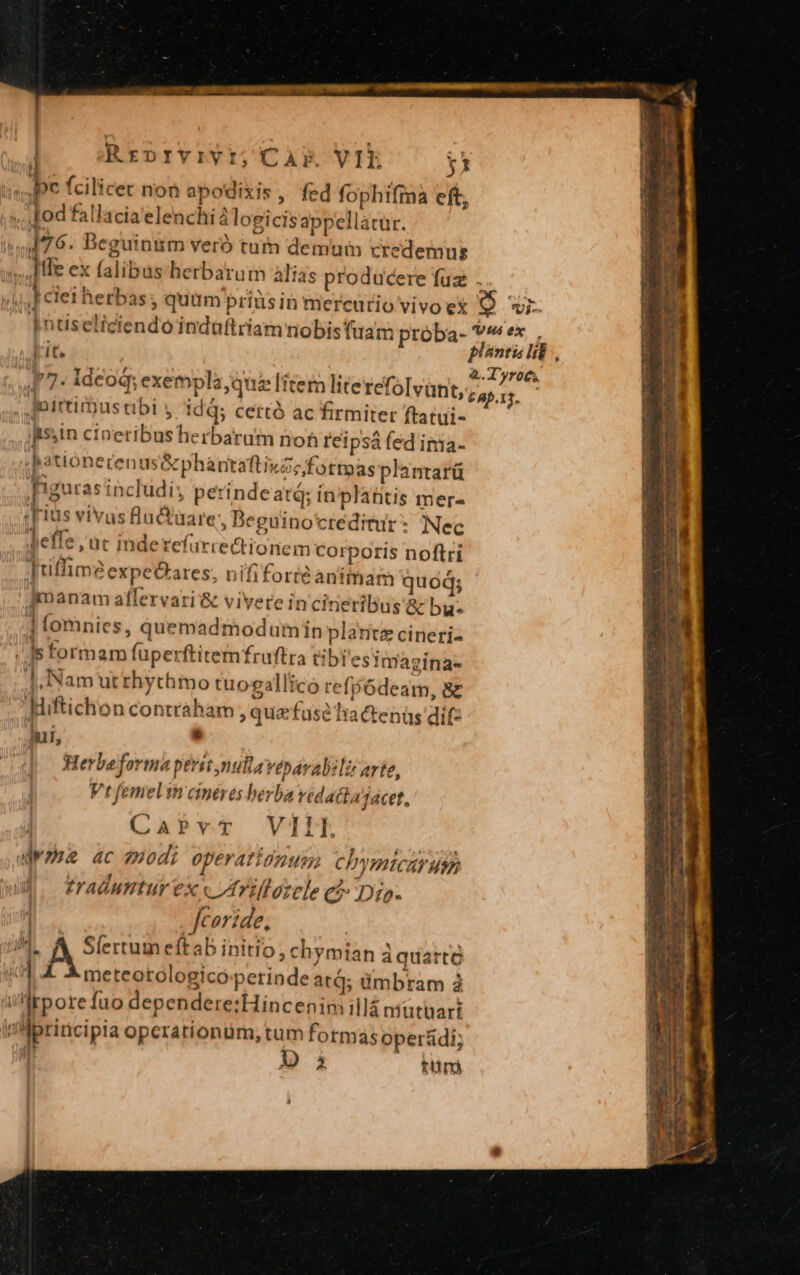 REDIVIVI, CAP. VII. 51
hoc ſcilicet non apodixis, ſed ſophiſma eſt,
quod fallacia elenchi à logicis appellatur.
76. Beguinum verò tum demum credemus
eſſe ex ſalibus herbarum alias producere ſuæ
ſpeciei herbas, quùm priùs in mercurio vivo ex ☿ vi-
entis eliciendo induſtriam nobis ſuam proba- vus ex
rit. plantis lib.
77. Ideoq; exempla, quæ litem lite reſolvunt, 2. Tyroc.
mittimus tibi, idq; certò ac firmiter ſtatui- cap. 13.
mus, in cineribus herbarum non reipsâ ſed ima-
ginatione tenus & phantaſtixῶς, formas plantarũ
figuras includi; perinde atq; in plantis mer-
curius vivus fluctuare, Beguino creditur: Nec
eſſe, ut inde reſurrectionem corporis noſtri
tutiſſimè expectares, niſi fortè animam quoq;
humanam aſſervari & vivere in cineribus & bu-
ſto omnies, quemadmodum in plantæ cineri-
bus formam ſuperſtitem fruſtra tibi es imagina-
tus. Nam ut rhythmo tuo gallico reſpõdeam, &
diſtichon contraham, quæ fusè hactenùs diſ-
ſerui,
Herbæ forma perit, nulla reparabilis arte,
Vt ſemel in cineres herba redacta jacet.
CAPVT VIII.
Formæ ac modi operationum chymicarum
traduntur ex Ariſtotele & Dio-
ſcoride.
1. ASſertum eſt ab initio, chymian à quarto
meteorologico perinde atq; umbram à
corpore ſuo dependere: Hinc enim illã mutuari
principia operationum, tum formas operãdi;
D 2 tùm